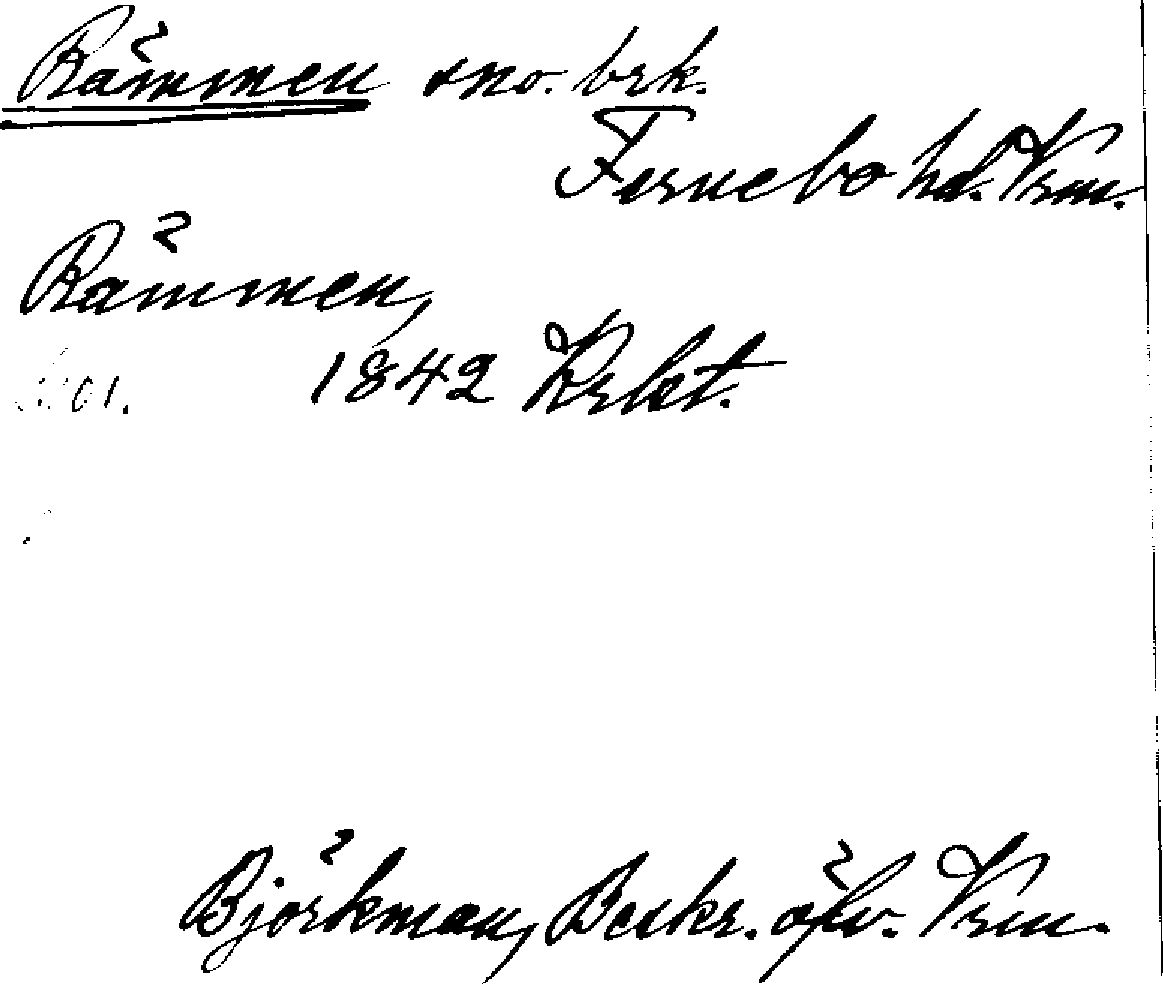 Rämmen sno. brk.
Fernebo hd. Vrm.
Rämmen,
1842 Krbst.
Björkman, Beskr. öfv. Vrm.